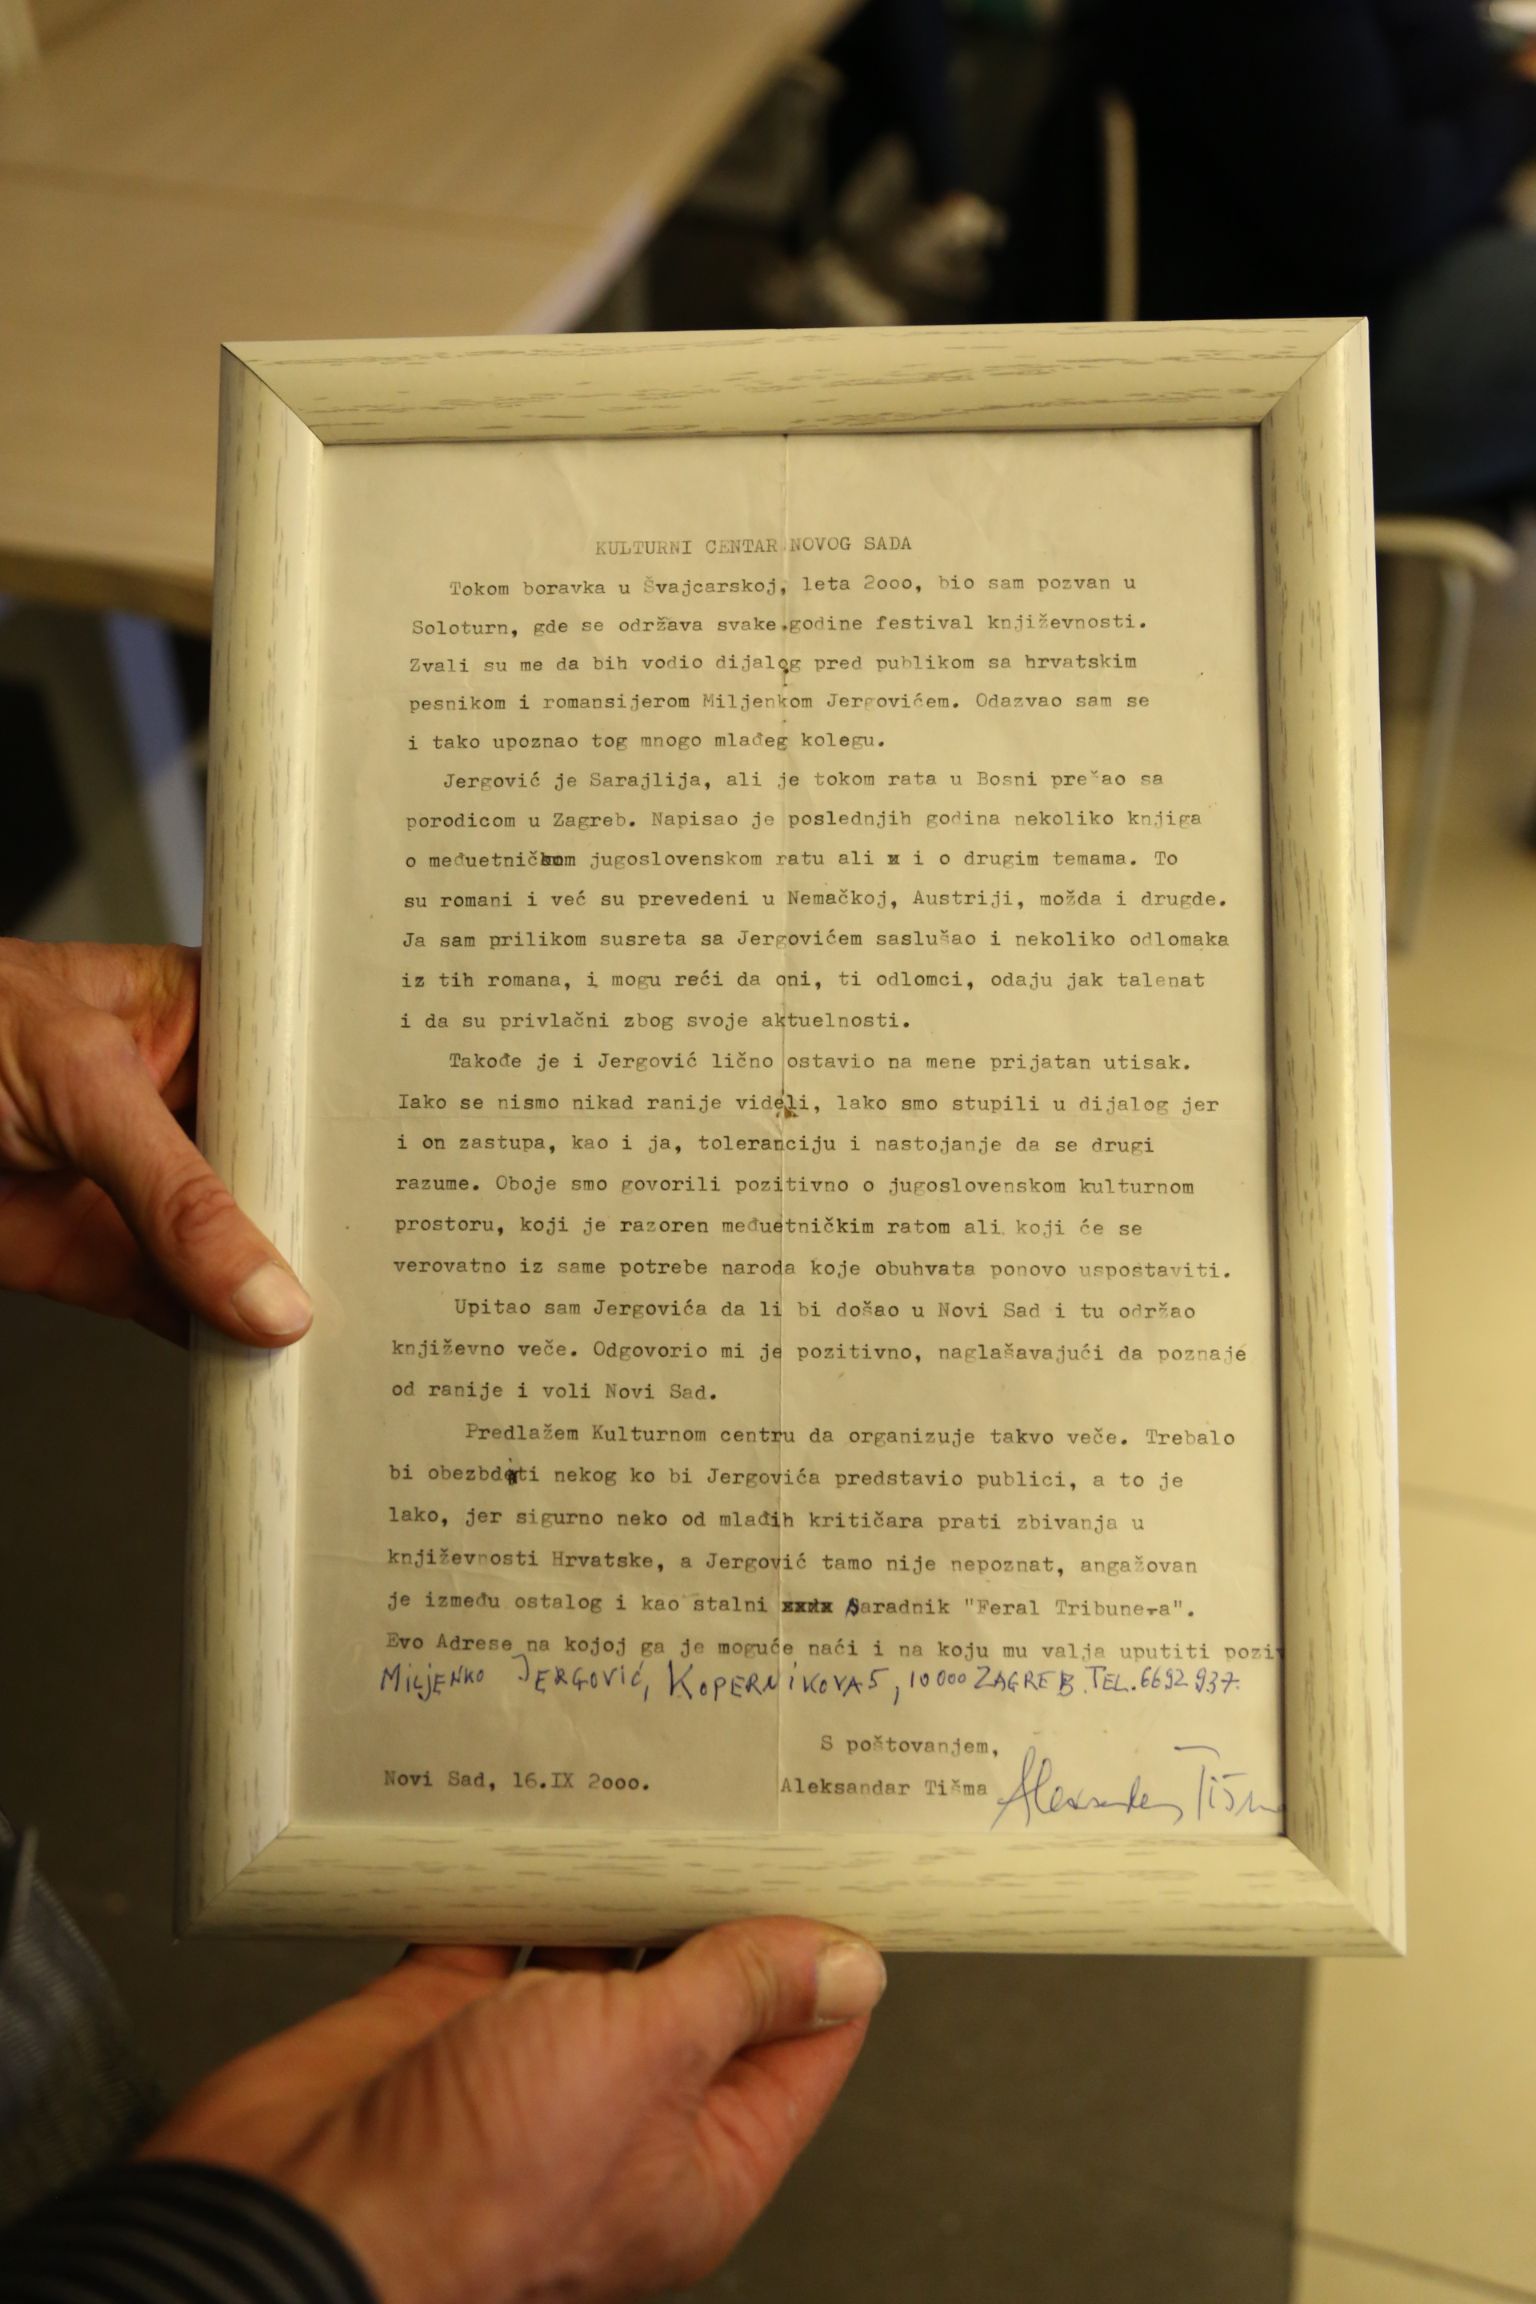 KULTURNI CENTAR NOVOG SADA
Tokom boravka u Švajcarskoj, leta 2ooo, bio sam pozvan u
Soloturn, gde se održava svake godine festival književnosti.
Zvali su me da bih vodio dijalog pred publikom sa hrvatskim
pesnikom i romansijerom Miljenkom Jergovićem. Odazvao sam se
i tako upoznao tog mnogo mlađeg kolegu.
Jergović je Sarajlija, ali je tokom rata u Bosni prešao sa
porodicom u Zagreb. Napisao je poslednjih godina nekoliko knjiga
o međuetničkom jugoslovenskom ratu ali x i o drugim temama. To
su romani i već su prevedeni u Nemačkoj, Austriji, možda i drugde.
Ja sam prilikom susreta sa Jergovićem saslušao i nekoliko odlomaka
iz tih romana, i mogu reći da oni, ti odlomci, odaju jak talenat
i da su privlačni zbog svoje aktuelnosti.
Takođe je i Jergović lično ostavio na mene prijatan utisak.
Iako se nismo nikad ranije videli, lako smo stupili u dijalog jer
i on zastupa, kao i ja, toleranciju i nastojanje da se drugi
razume. Oboje smo govorili pozitivno o jugoslovenskom kulturnom
prostoru, koji je razoren međuetničkim ratom ali koji će se
verovatno iz same potrebe naroda koje obuhvata ponovo uspostaviti.
Upitao sam Jergovića da li bi došao u Novi Sad i tu održao
književno veče. Odgovorio mi je pozitivno, naglašavajući da poznaje
od ranije i voli Novi Sad.
Predlažem Kulturnom centru da organizuje takvo veče. Trebalo
bi nekog ko bi Jergovića predstavio publici, a to je
lako, jer sigurno neko od mlađih kritičara prati zbivanja u
književnosti Hrvatske, a Jergović tamo nije nepoznat, angažovan
je između ostalog i kao stalni saradnik "Feral Tribunea".
Evo Adrese na kojoj ga je moguće naći i na koju mu valja uputiti pozi
MILJENKO JERGOVIĆ, KOPERNIKOVA 5, 10000 ZAGREB. TEL. 6692 937.
S poštovanjem,
Novi Sad, 16.IX 2ooo. Aleksandar Tišma Aleksandar Tišma